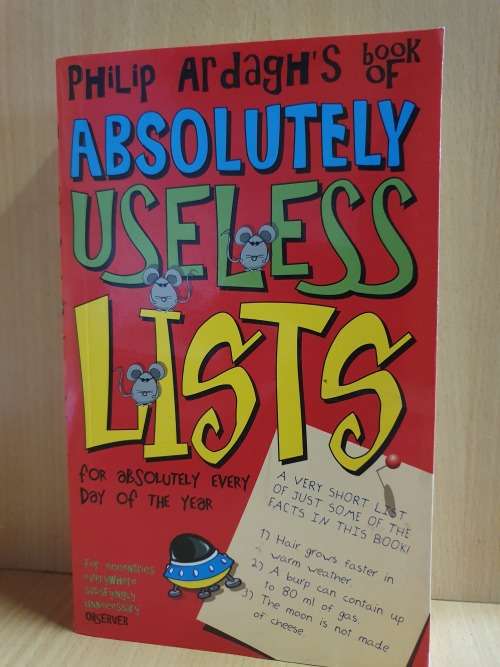 PHILIP ARDAGH'S BOOK OF
ABSOLUTELY
USELESS
LISTS
FOR ABSOLUTELY EVERY
DAY OF THE YEAR
A VERY SHORT LIST
OF JUST SOME OF THE
FACTS IN THIS BOOK!
1) Hair grows faster in
warm weather.
2) A burp can contain up
to 80 ml of gas.
3) The moon is not made
of cheese.
everywhere
unnecessary
OBSERVER